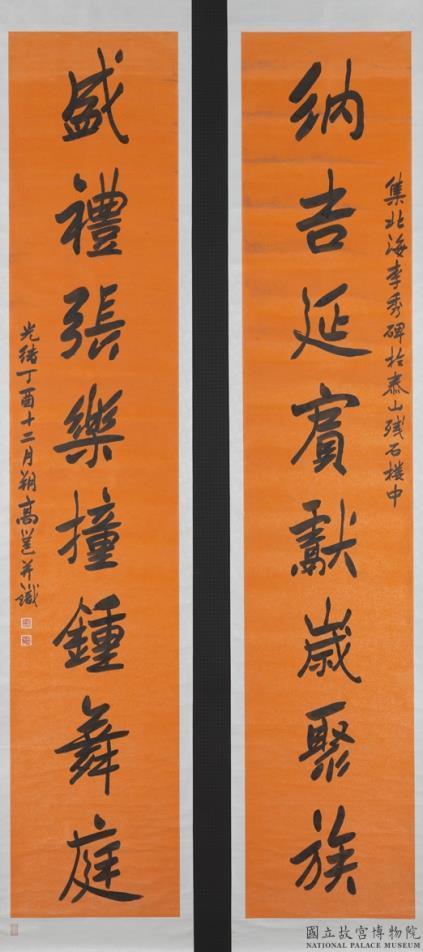 集北海李秀碑於泰山殘石樓中
納吉延賓獻歲聚族
盛禮張樂撞鍾舞庭
光緒丁酉十二月朔高邕并識
國立故宮博物院
NATIONAL PALACE MUSEUM